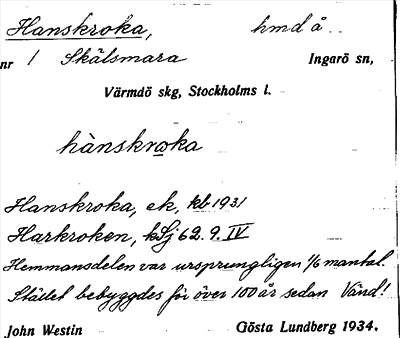 Hanskroka, hmd å
nr 1 Skälsmara Ingarö sn,
Värmdö skg, Stockholms l.
hànskroka
Hanskroka, ek, kb 1931
Harkroken, kSj 62. 9. IV
Hemmansdelen var ursprungligen 1/6 mantal.
Stället bebyggdes för över 100 år sedan Vänd!
John Westin Gösta Lundberg 1934.